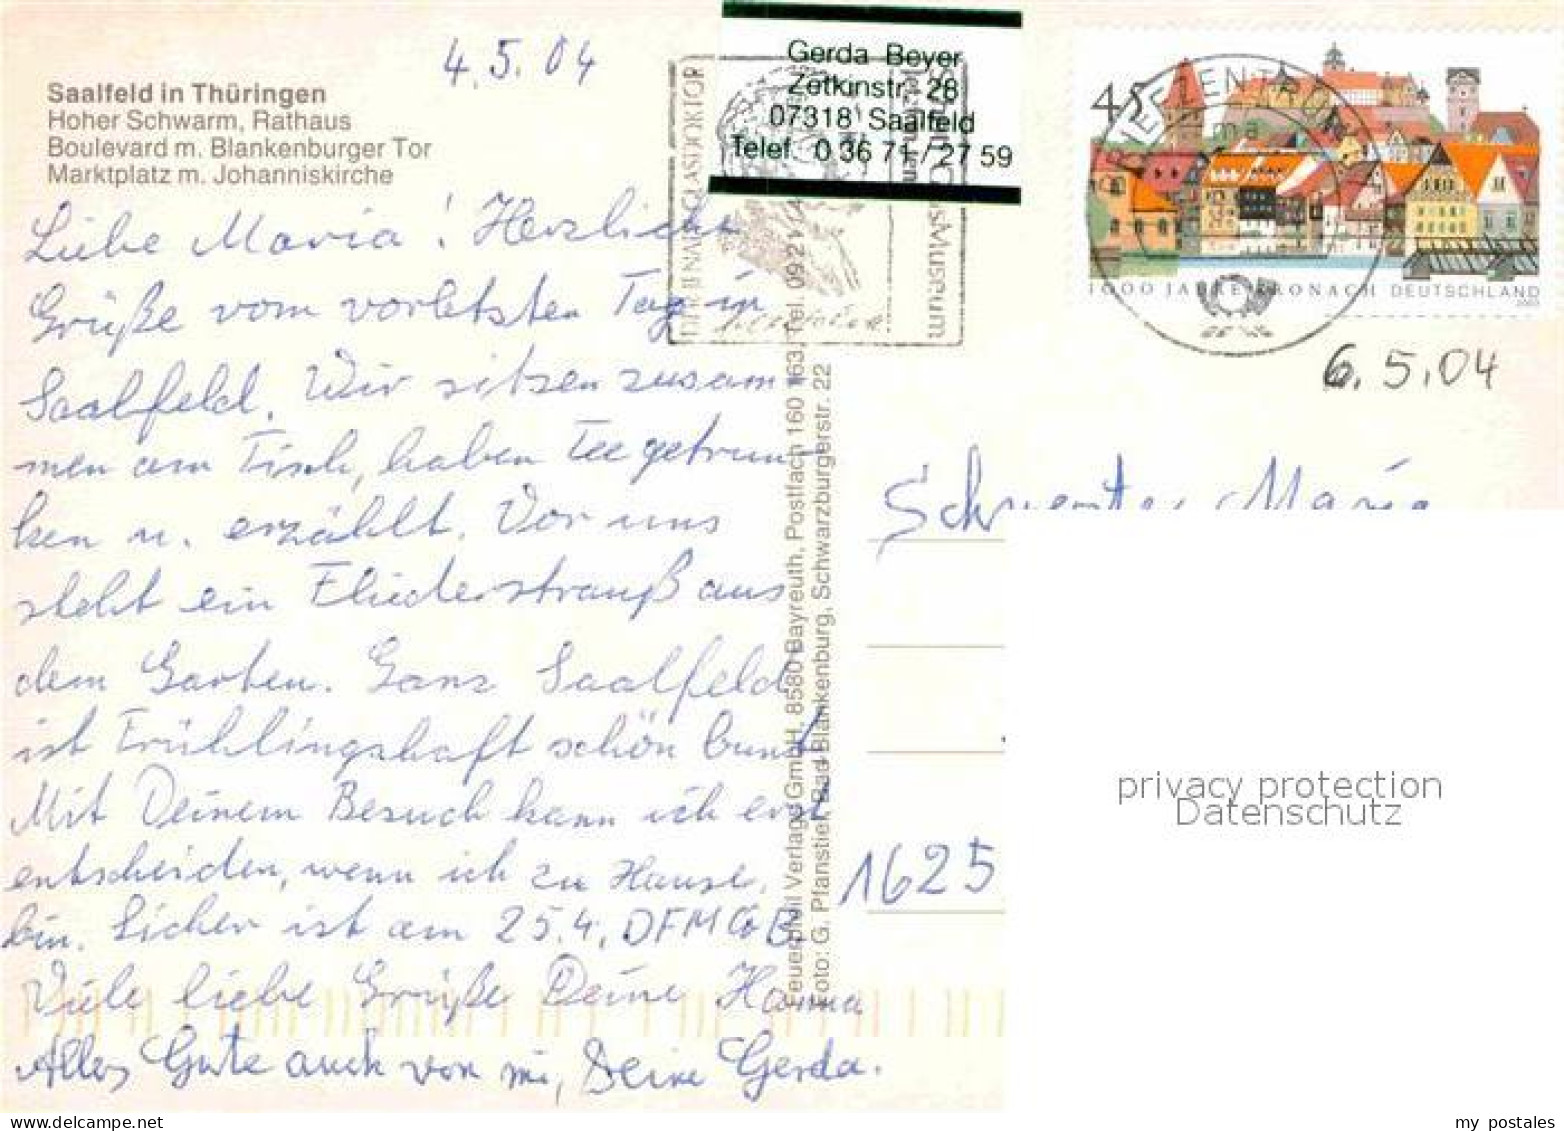 4.5.04
Saalfeld in Thüringen
Hoher Schwarm, Rathaus
Boulevard m. Blankenburger Tor
Marktplatz m. Johanniskirche
Gerda Beyer
Zetkinstr. 28
07318 Saalfeld
Telef. 0 36 71 / 27 59
DER JENAER GLASDOKTOR
Museum
45
BRIEFZENTRUM
1000 JAHRE KRONACH DEUTSCHLAND
6.5.04
Liebe Maria! Herzliche
Grüße vom vorletzten Tag in
Saalfeld. Wir sitzen zusam-
men am Tisch, haben Tee getrun-
ken u. erzählt. Vor uns
steht ein Fliederstrauß aus
dem Garten. Ganz Saalfeld
ist Frühlingshaft schön bunt
Mit Deinem Besuch kann ich erst
entscheiden, wenn ich zu Hause
bin. Sicher ist am 25.4. DFMGB.
Viele liebe Grüße Deine Hanna
Alles Gute auch von mir, Deine Gerda.
Feuerpfeil Verlags GmbH, 8580 Bayreuth, Postfach 160 163, Tel. 0921
Foto: G. Pfanstiel, Bad Blankenburg, Schwarzburgerstr. 22
Maria
1625
privacy protection
Datenschutz
my postales